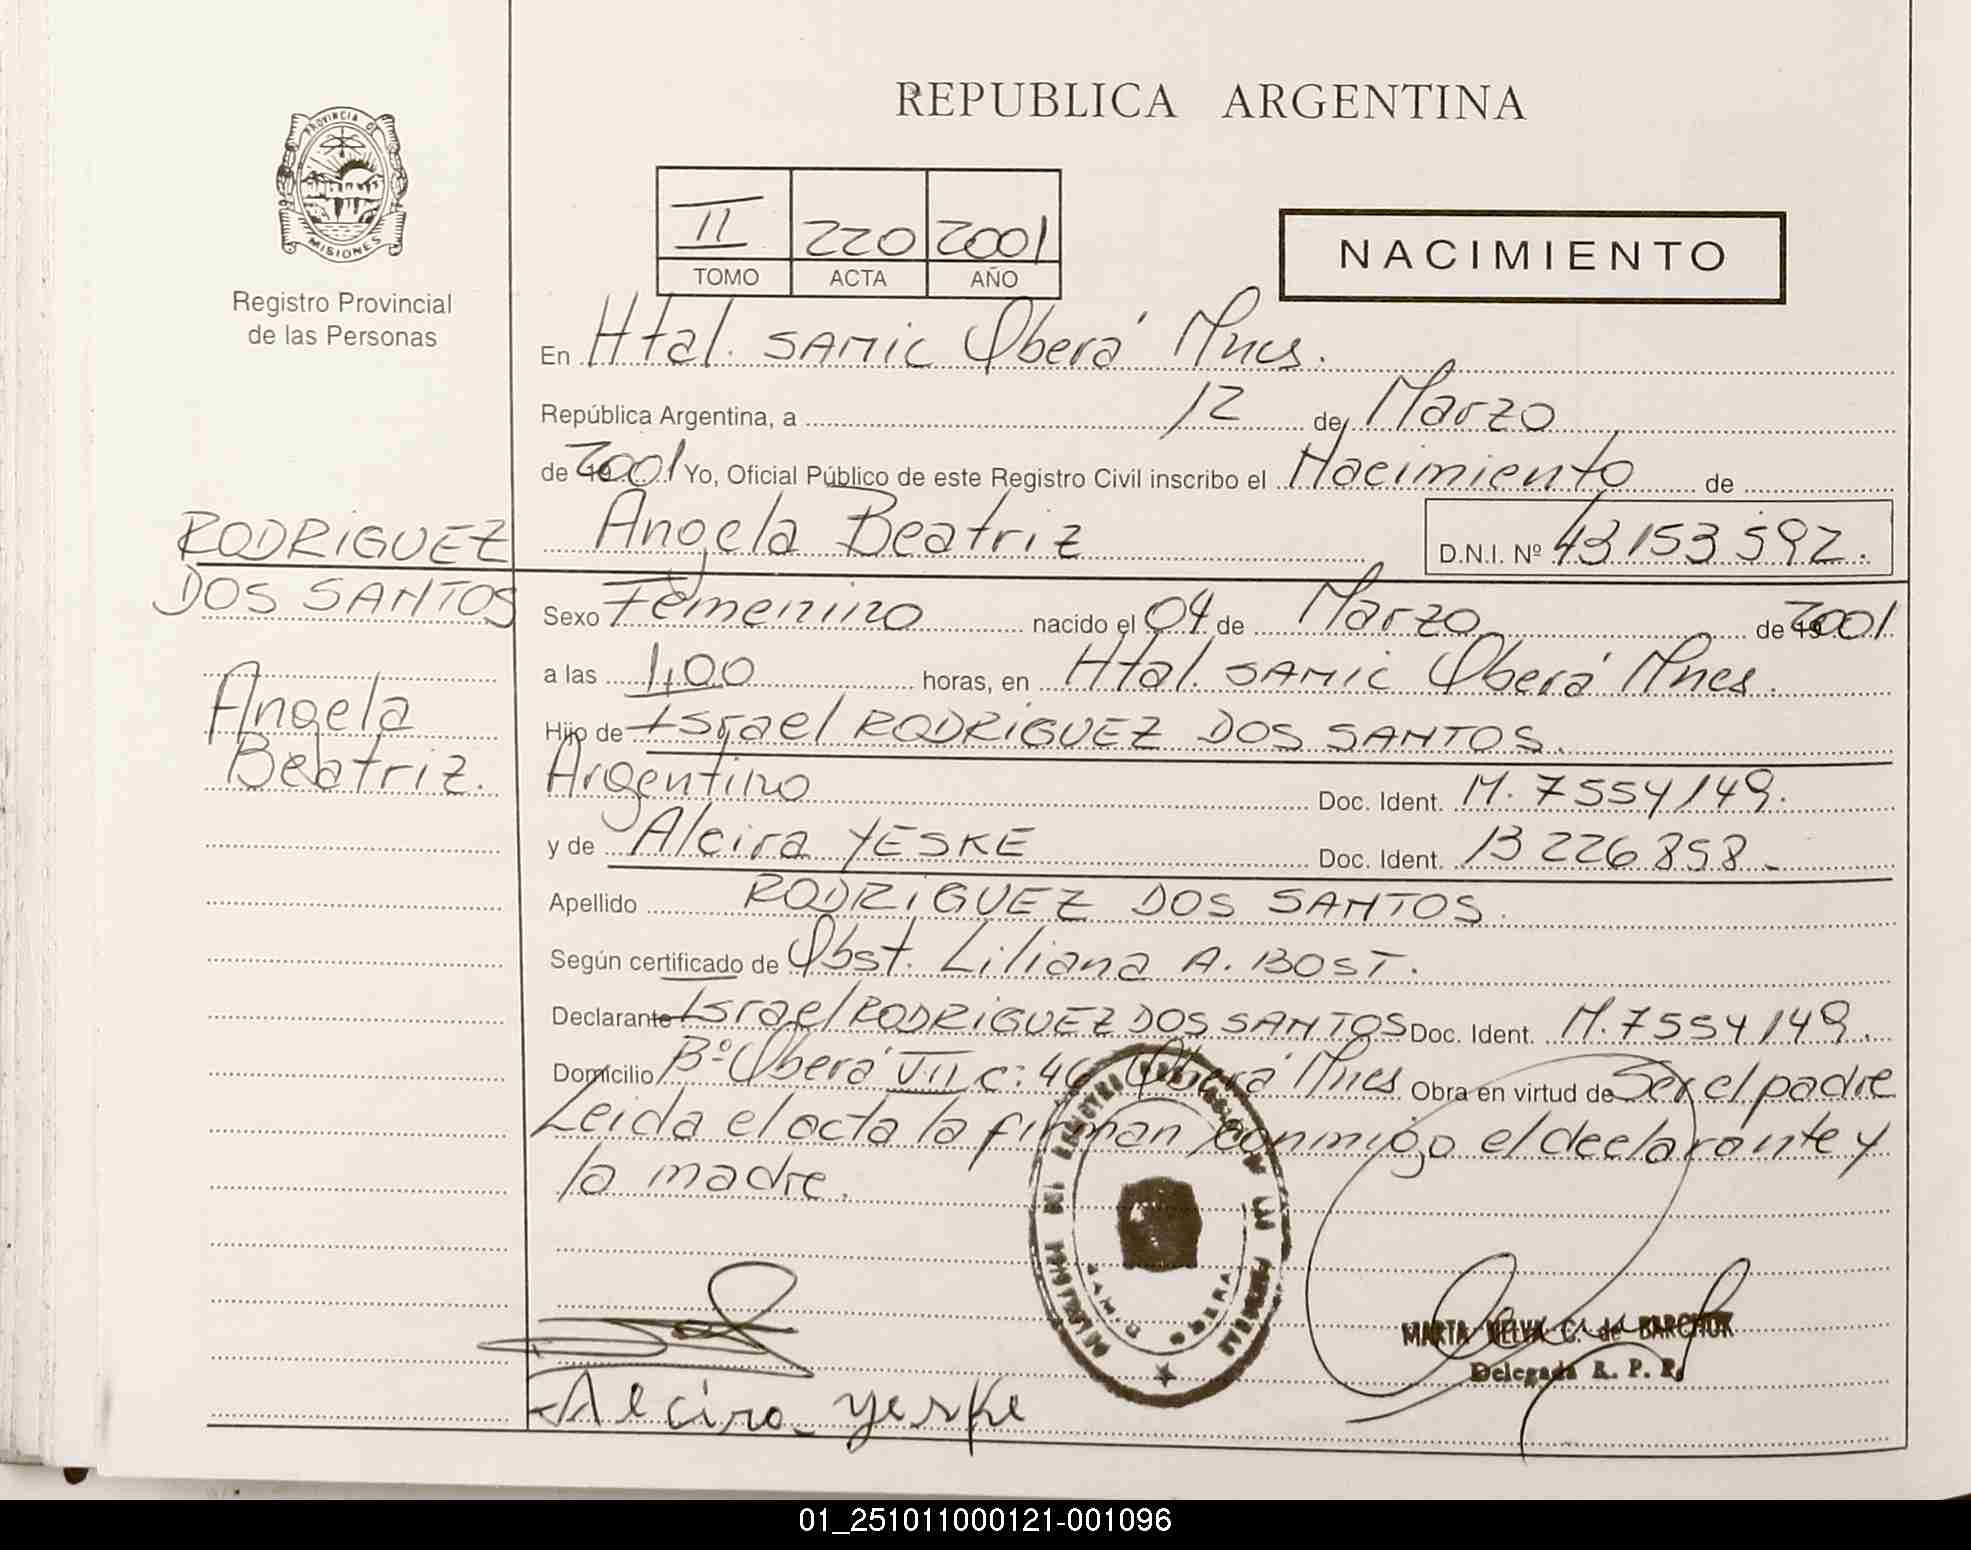 REPUBLICA ARGENTINA
PROVINCIA DE
MISIONES
Registro Provincial
de las Personas
II 220 2001
TOMO ACTA AÑO
NACIMIENTO
En Htal. SAMIC Oberá Mnes.
República Argentina, a 12 de Marzo
de 2001 Yo, Oficial Público de este Registro Civil inscribo el Nacimiento de
RODRIGUEZ Angela Beatriz D.N.I. Nº 43.153.592.
DOS SANTOS Sexo Femenino nacido el 04 de Marzo de 2001
a las 1,00 horas, en Htal. SAMIC Oberá Mnes.
Angela Hijo de Israel RODRIGUEZ DOS SANTOS.
Beatriz. Argentino Doc. Ident. M. 7554149.
y de Alcira YESKE Doc. Ident. 13226858
Apellido RODRIGUEZ DOS SANTOS.
Según certificado de Obst. Liliana A. BOST.
Declarante Israel RODRIGUEZ DOS SANTOS Doc. Ident. M. 7554149.
Domicilio Bº Oberá VII c: 46 Oberá Mnes Obra en virtud de Ser el padre
Leida el acta la firman conmigo el declarante y
la madre.
MARTA NELVA C. de BARCHUK
Delegada R. P. P.
Alcira Yeske
01_251011000121-001096